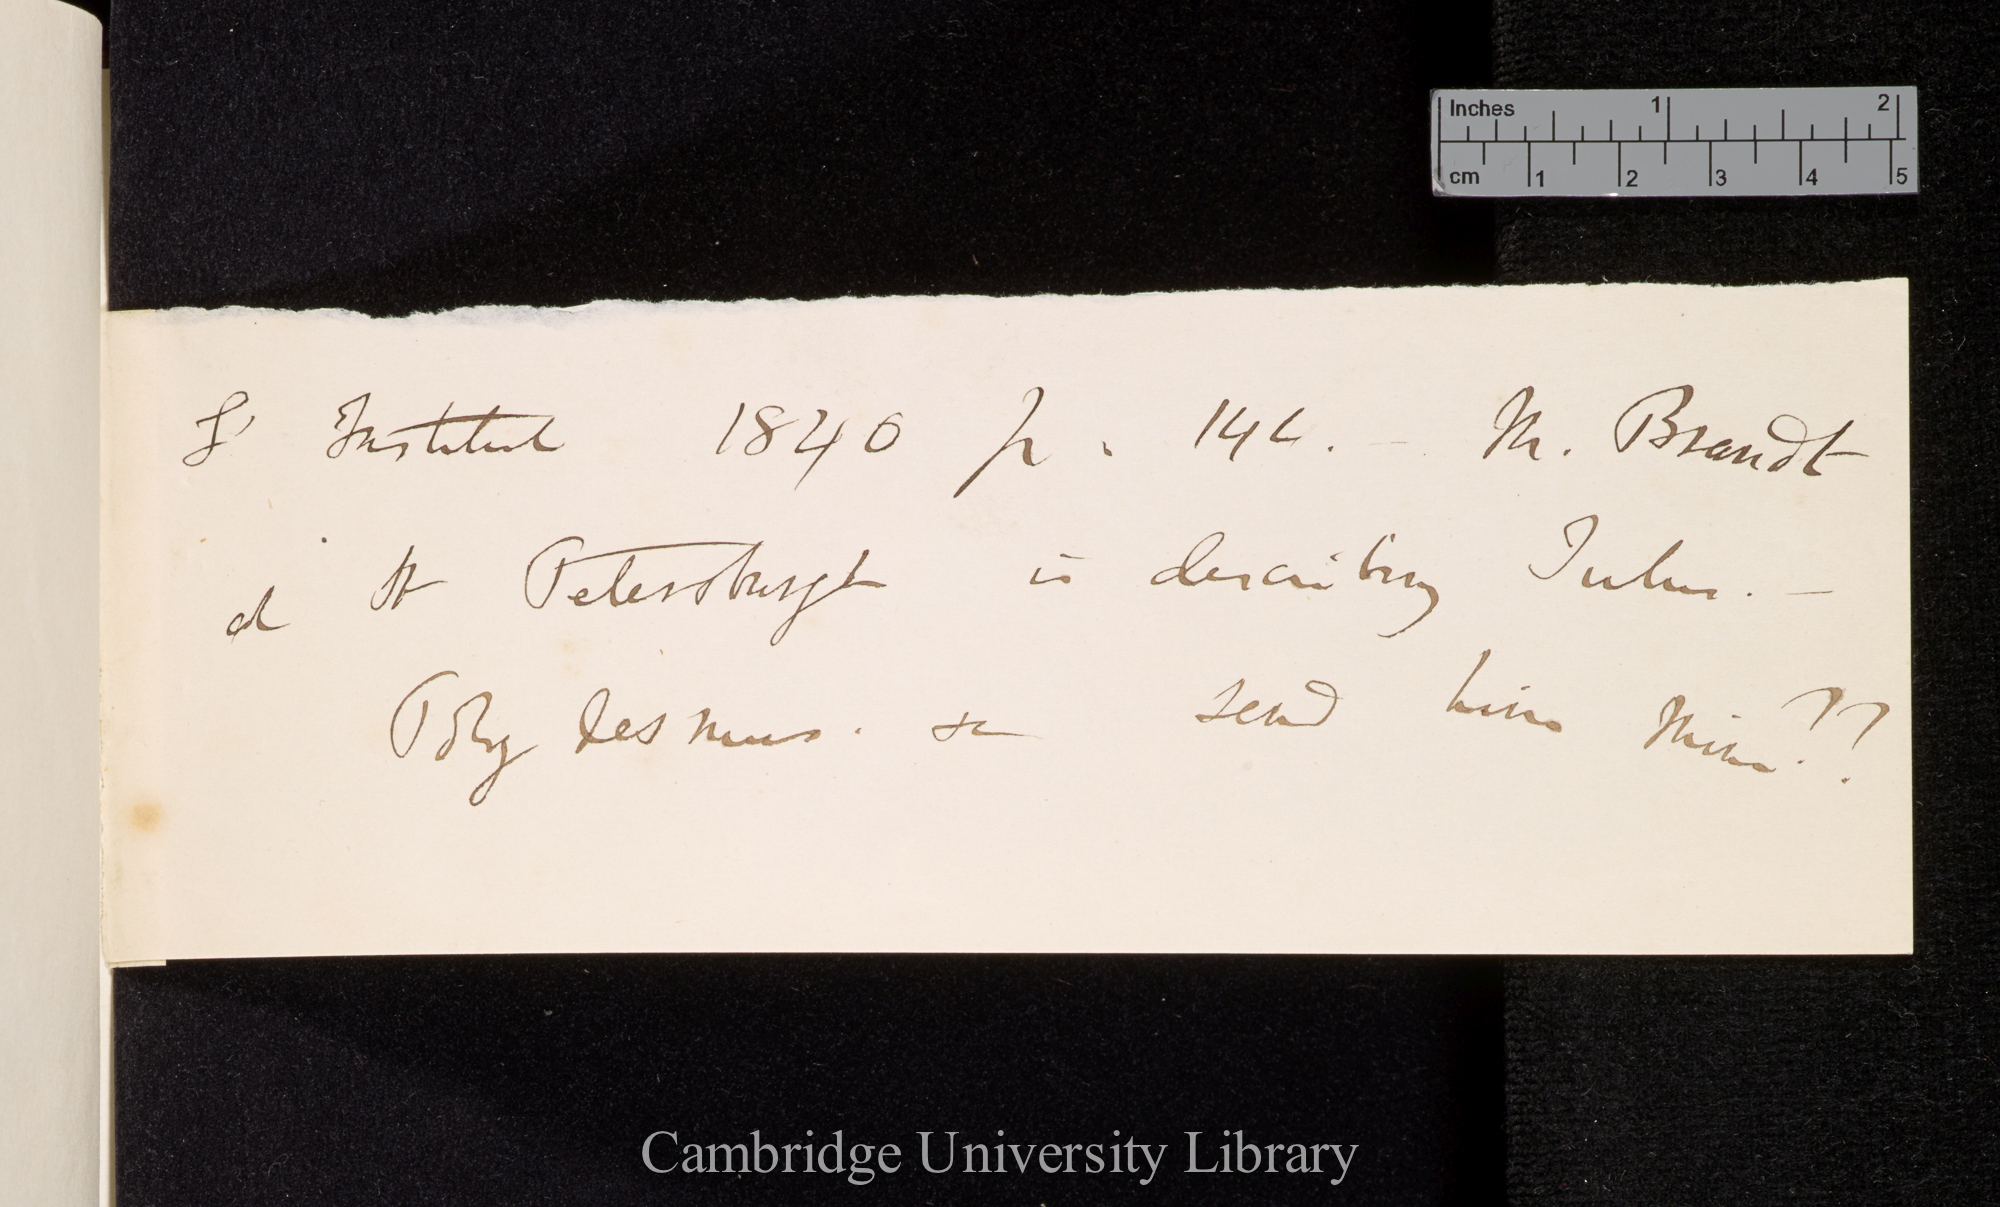 Inches 1 2
cm 1 2 3 4 5
L' Institut 1840 p. 146. — M. Brandt
at St Petersburgh is describing Iulus. —
Polydesmus. &c send him mine??
Cambridge University Library